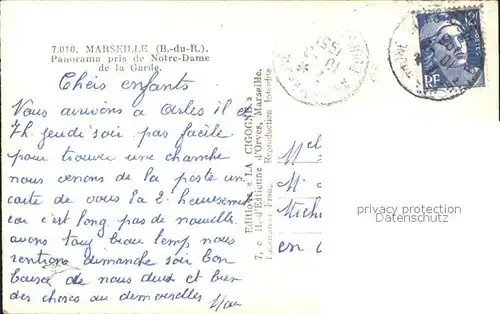 7.010. MARSEILLE (B.-du-R.).
Panorama pris de Notre-Dame
de la Garde.
Chers enfants
Nous arrivons a Arles il et
7h jeudi soir pas facile
pour trouver une chambre
nous venons de la poste un
carte de vous la 2. heureusement
car c'est long pas de nouvelle
avons tay beau temp nous
rentrons dimanche soir bon
baisé de nous deux et bien
des choses au demoiselles
Editions « LA CIGOGNE »
7, c H.-d'Estienne d'Orves, Marseille.
Fabrication Fran. Reproduction Interdite
RF
Mel
M
Mich
en
privacy protection
Datenschutz